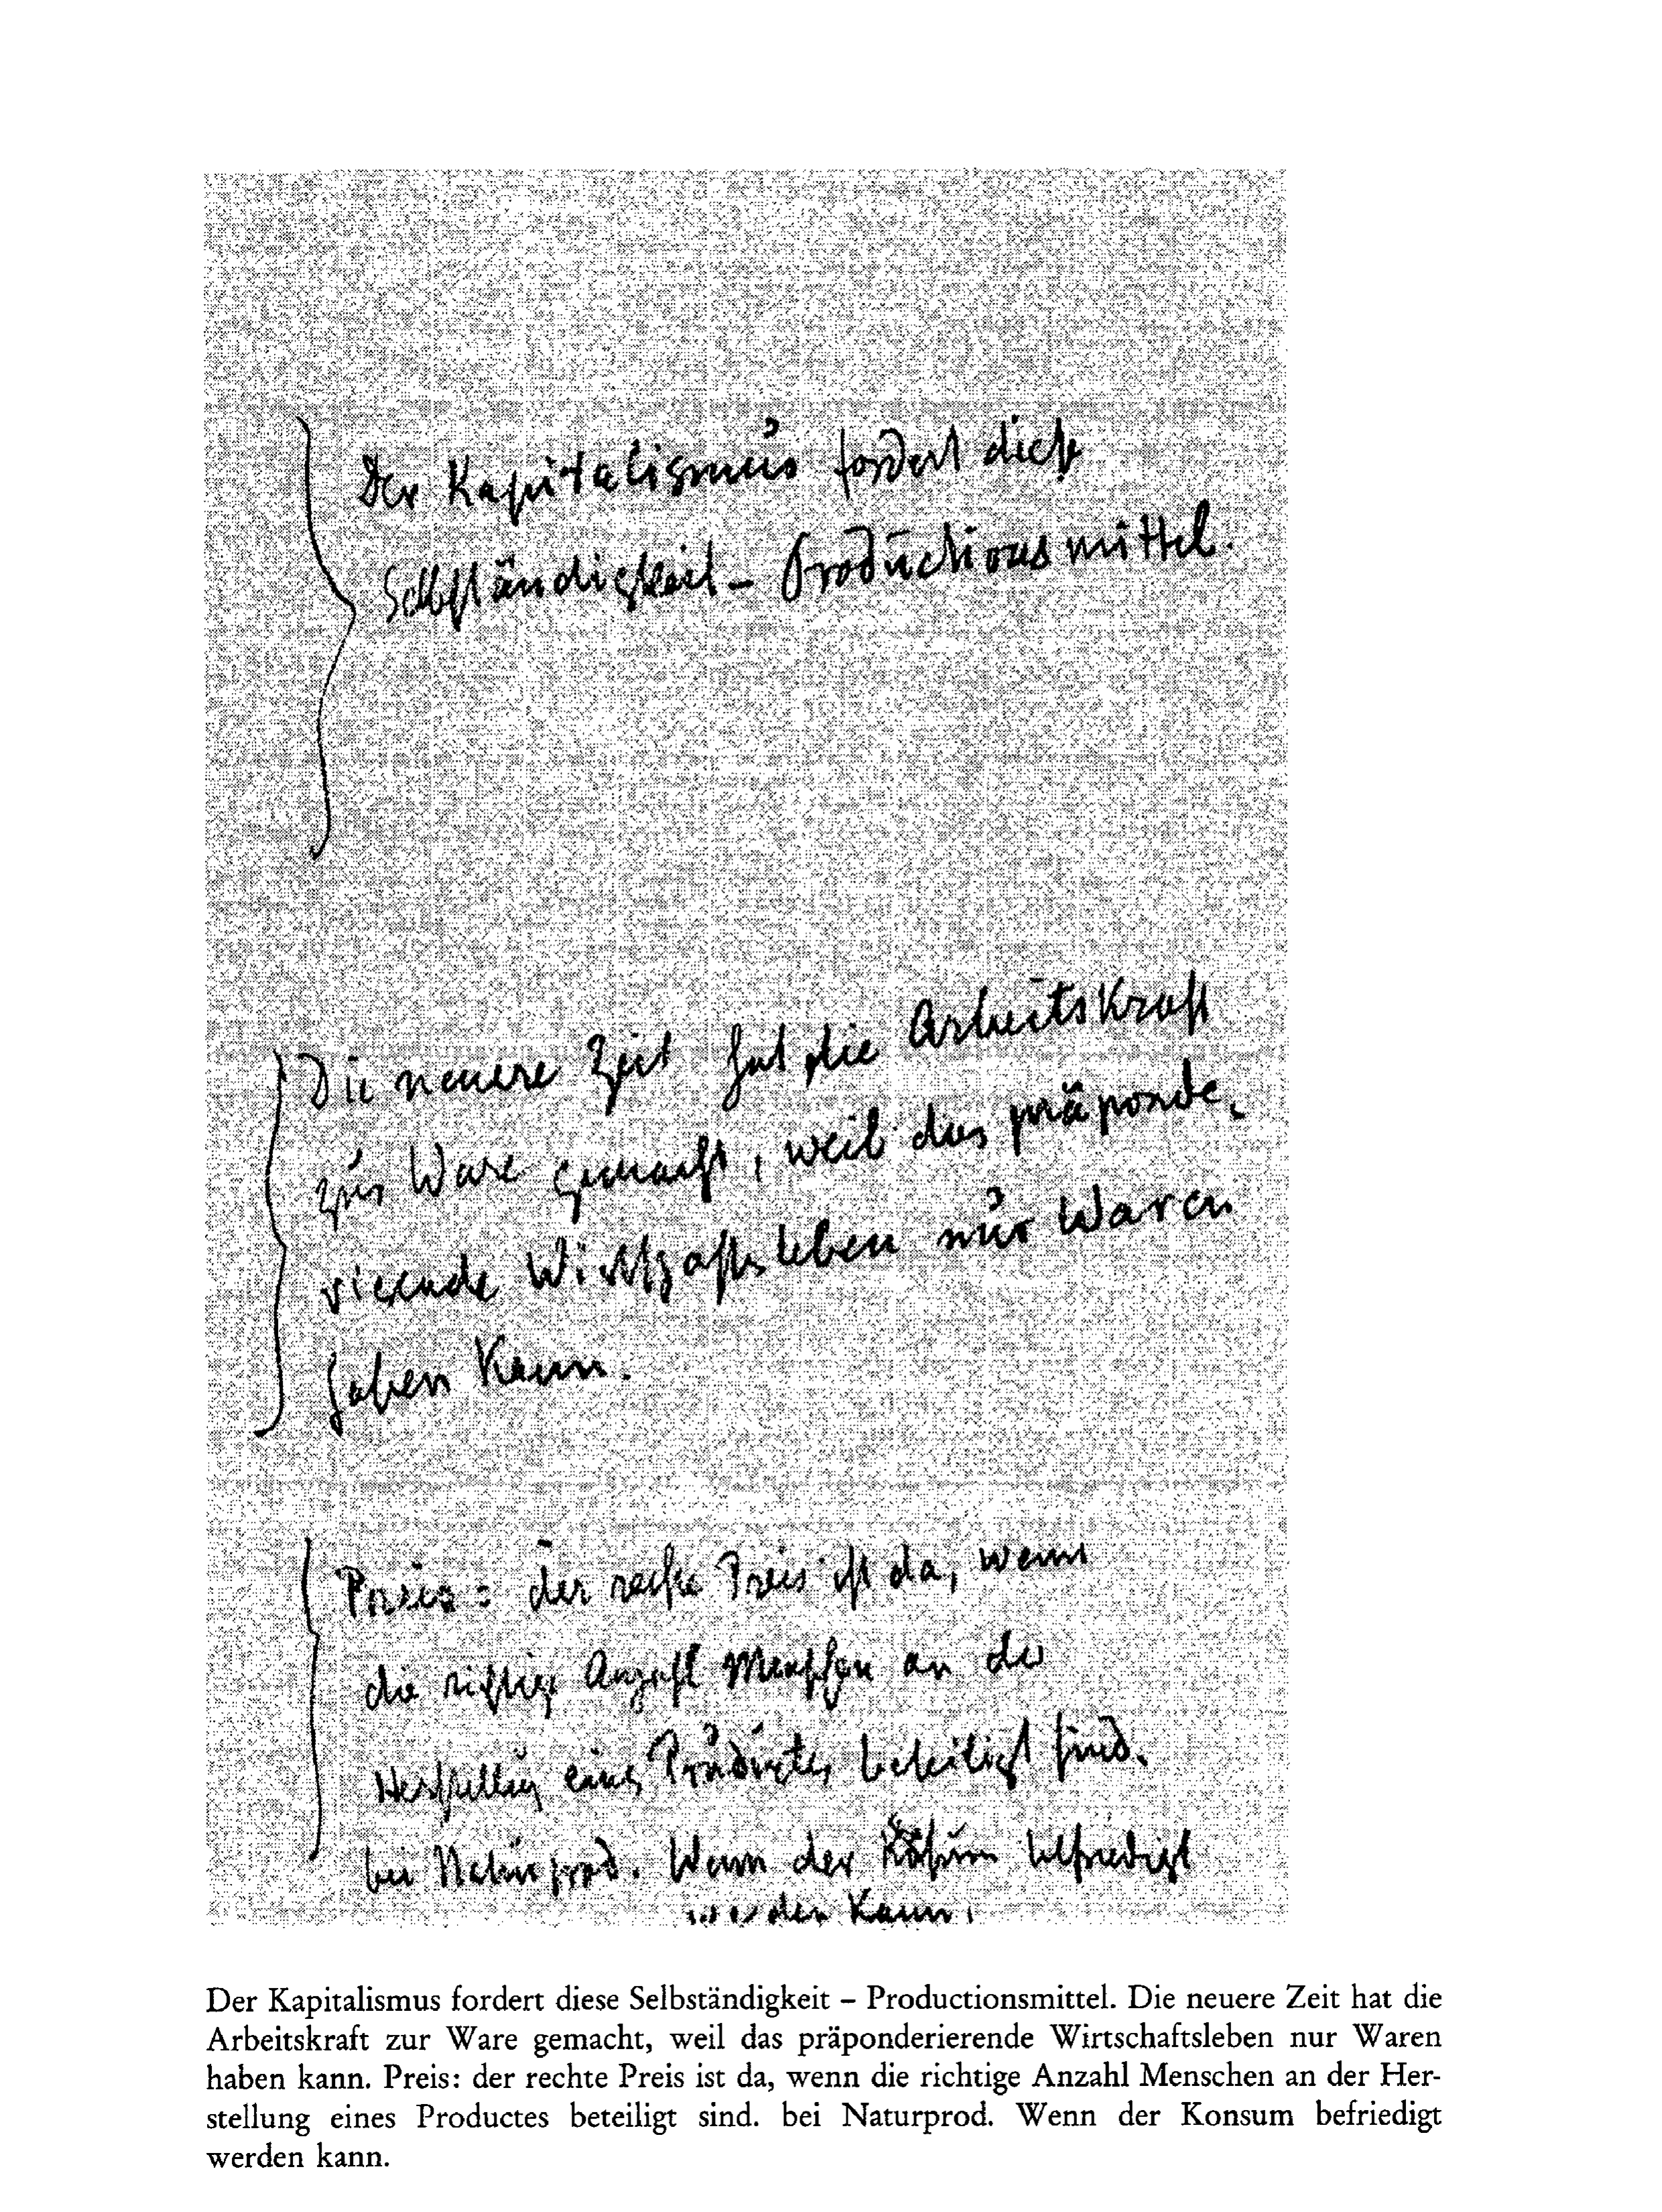 Der Kapitalismus fordert diese
Selbständigkeit – Productionsmittel.
Die neuere Zeit hat die Arbeitskraft
zur Ware gemacht, weil das präponde-
rierende Wirtschaftsleben nur Waren
haben kann.
Preis: der rechte Preis ist da, wenn
die richtige Anzahl Menschen an der
Herstellung eines Productes beteiligt sind.
bei Naturprod. Wenn der Konsum befriedigt
werden kann.
Der Kapitalismus fordert diese Selbständigkeit – Productionsmittel. Die neuere Zeit hat die
Arbeitskraft zur Ware gemacht, weil das präponderierende Wirtschaftsleben nur Waren
haben kann. Preis: der rechte Preis ist da, wenn die richtige Anzahl Menschen an der Her-
stellung eines Productes beteiligt sind. bei Naturprod. Wenn der Konsum befriedigt
werden kann.